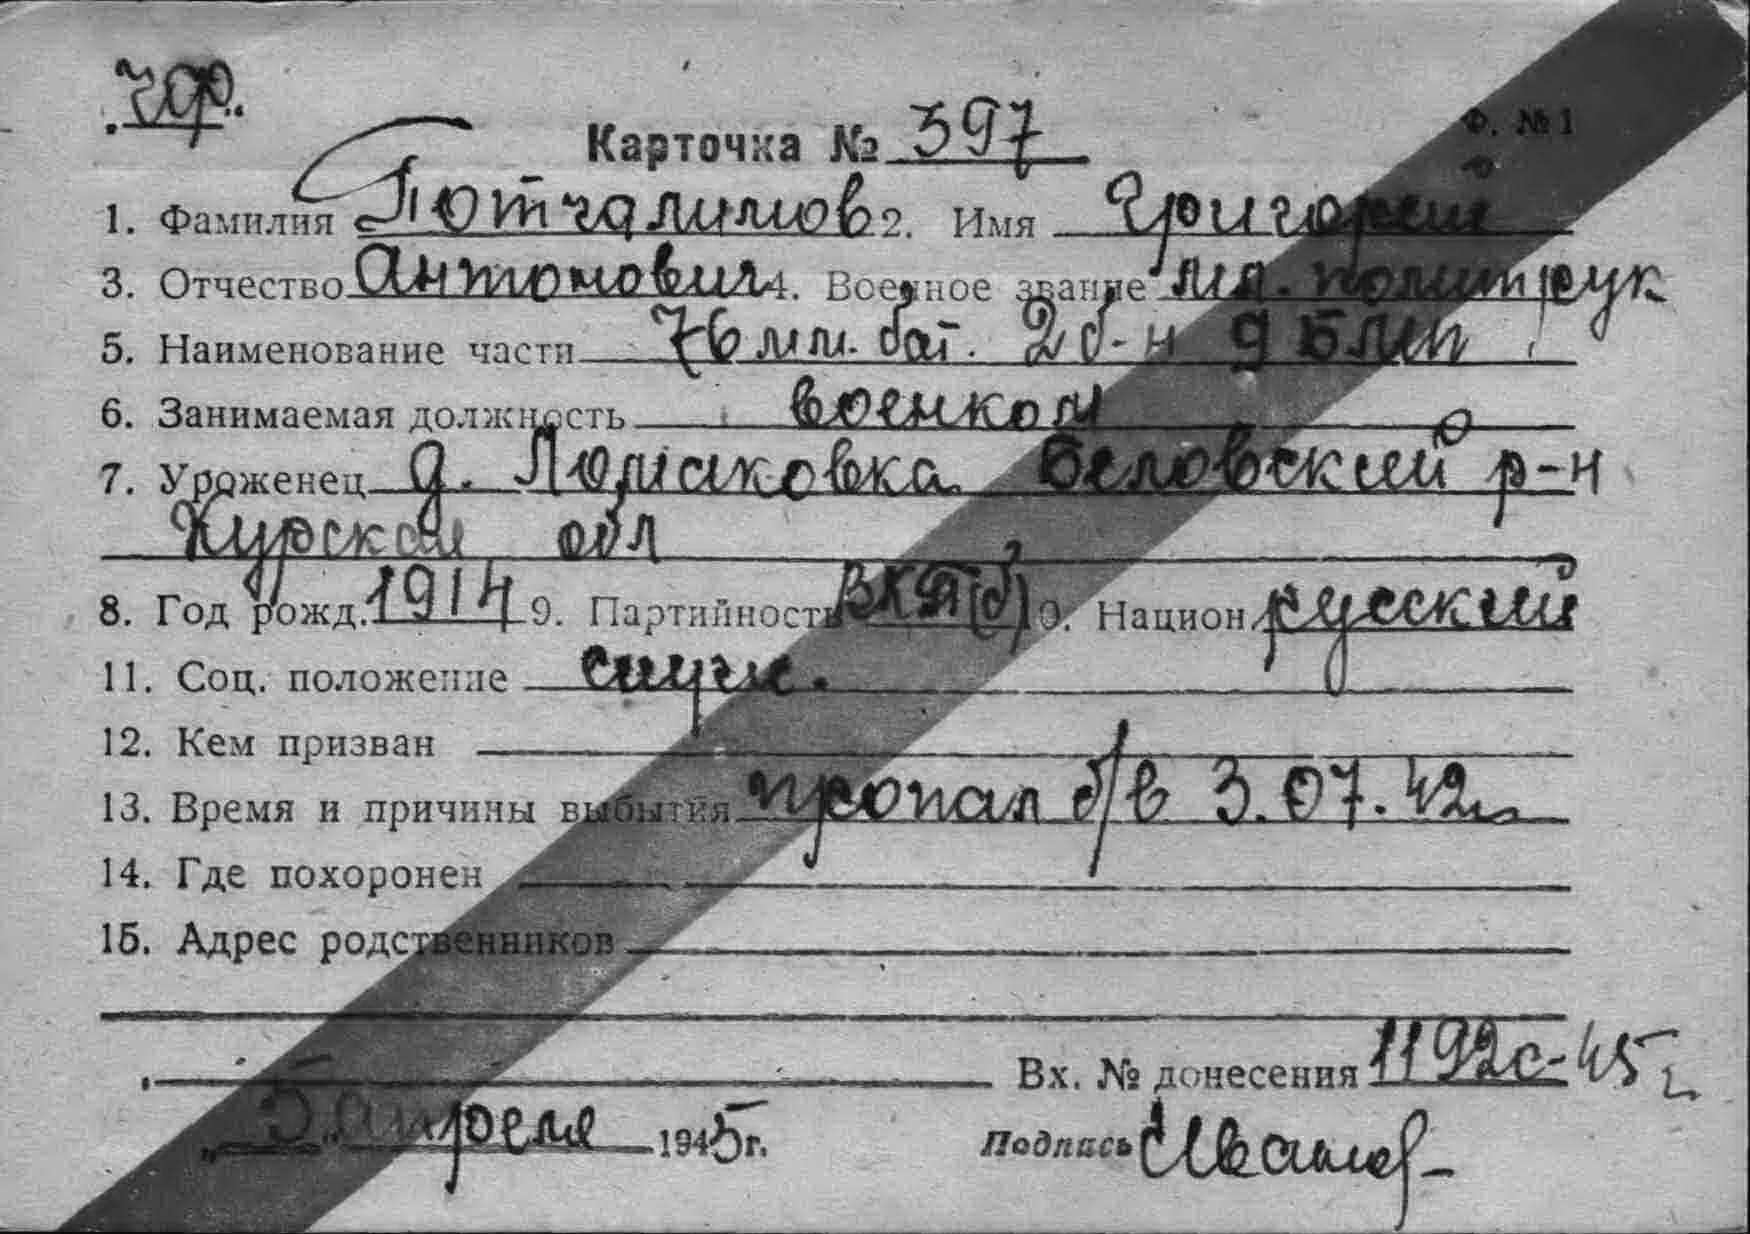 чф.
Карточка № 397
Ф. № 1
1. Фамилия Потчалимов 2. Имя Григорий
3. Отчество Антонович 4. Военное звание мл. политрук
5. Наименование части 76 мм. бат. 2 б-н 9 БМП
6. Занимаемая должность военком
7. Уроженец д. Ломаковка Беловский р-н
Курской обл
8. Год рожд. 1914 9. Партийность ВКП(б) 0. Национ. русский
11. Соц. положение служ.
12. Кем призван
13. Время и причины выбытия пропал б/в 3.07.42г
14. Где похоронен
15. Адрес родственников
Вх. № донесения 1192с-45г
„5" апреля 1945 г. Подпись Иванов